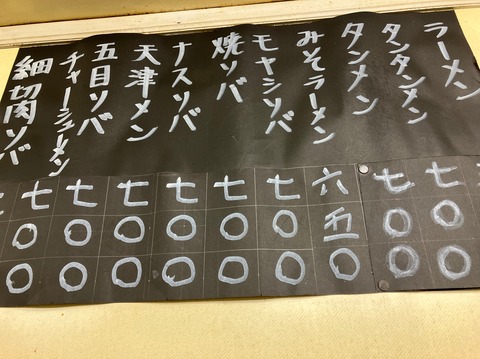 ラーメン
タンタンメン
七〇〇
タンメン
七〇〇
みそラーメン
六五〇
モヤシソバ
七〇〇
焼ソバ
七〇〇
ナスソバ
七〇〇
天津メン
七〇〇
五目ソバ
七〇〇
チャーシューメン
七〇〇
細切肉ソバ